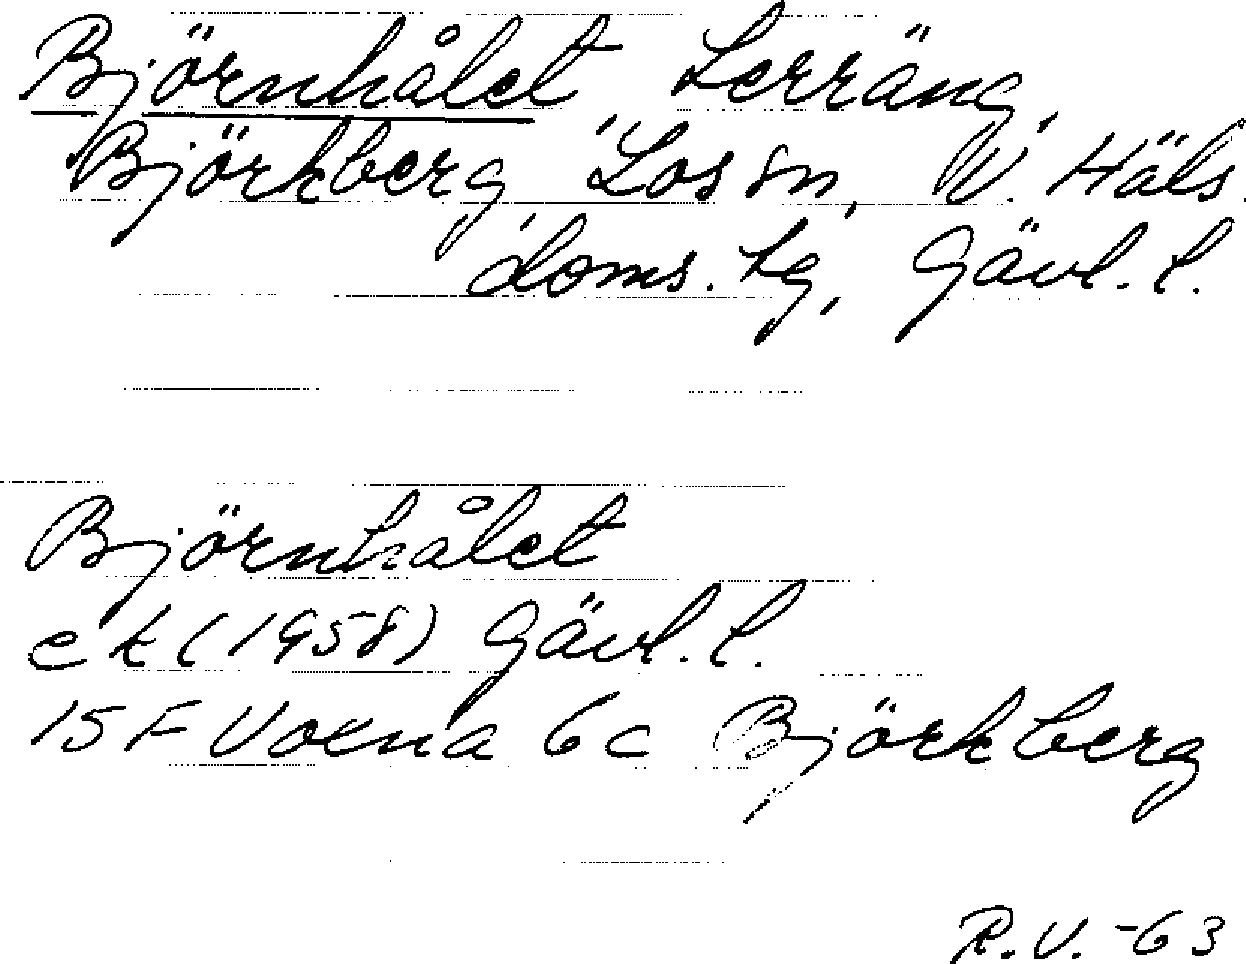 Björnhålet, Terräng,
Björkberg, Los sn, V. Häls.
doms. tg, Gävl. l.
Björnhålet
ek (1958) Gävl. l.
15F Voxna 6c Björkberg
R.V. -63